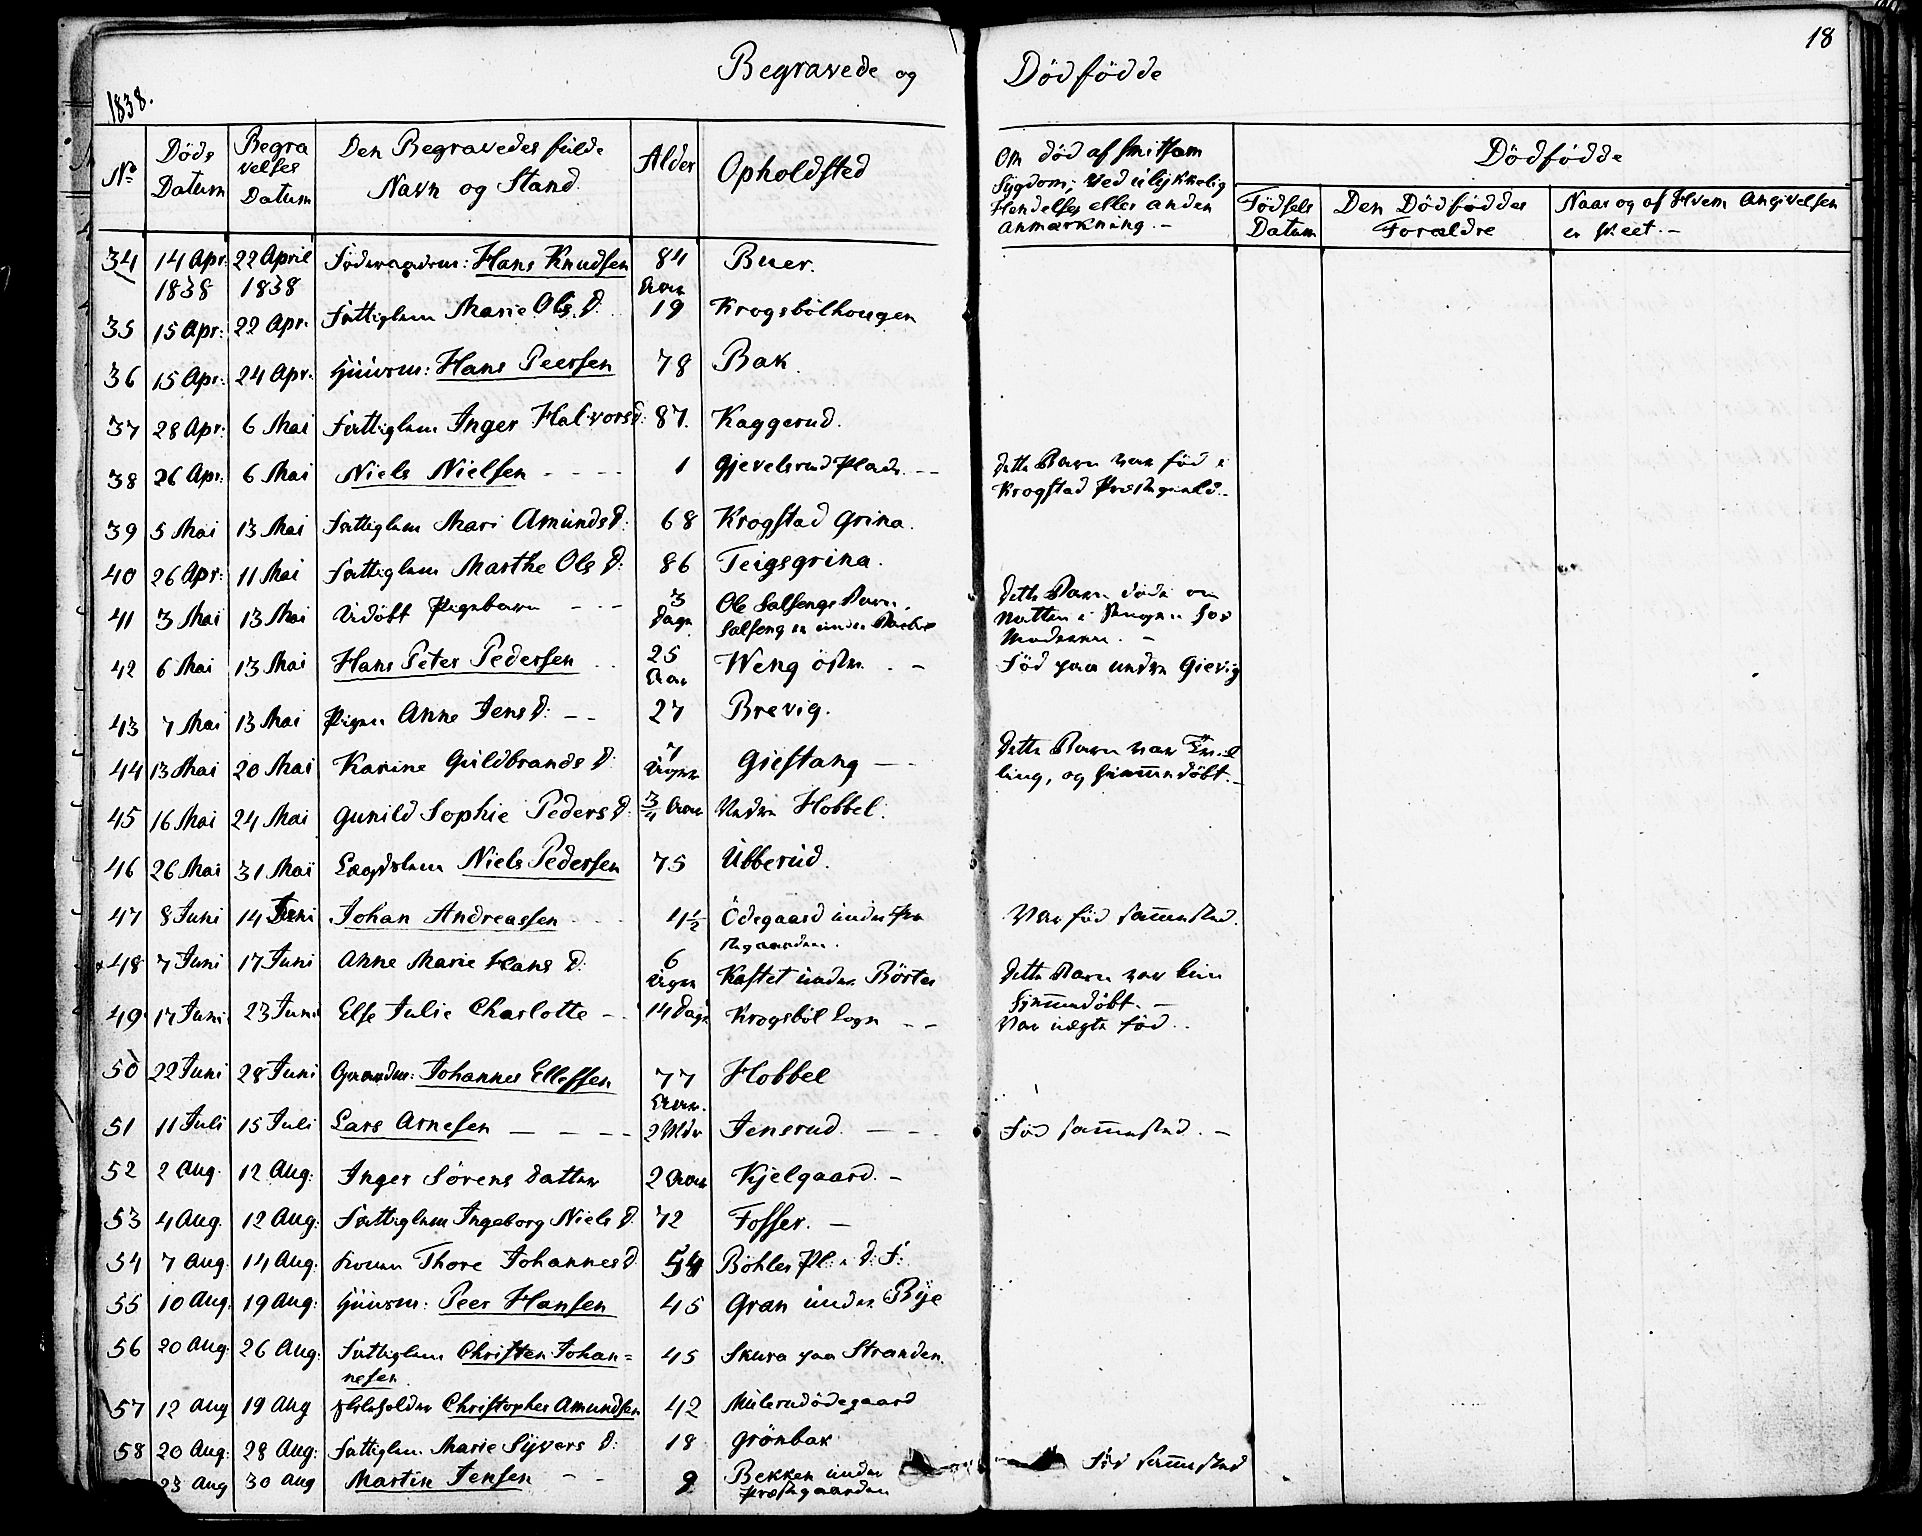 18
Begravede og Dødfødde
1838.
No Døds Datum Begravelses Datum Den Begravedes fulde Navn og Stand. Alder Opholdsted Om død af smitsom Sygdom; ved ulykkelig Hendelse eller anden Anmærkning.- Dødfødde
Fødsels Datum Den Dødføddes Forældre Naar og af Hvem Angivelsen er skeet.-
34 14 Apr. 1838 22 April 1838 Hans Knudsen 84 Aar Buer.
35 15 Apr: 22 Apr. Fattiglem Marie Ols D. 19 Krogsbölhougen
36 15 Apr: 24 Apr. Huusm: Hans Peersen 78 Bak.
37 28 Apr: 6 Mai Fattiglem Inger Halvorsd: 87. Kaggerud.
38 26 Apr: 6 Mai Niels Nielsen - - - - 1 Gjevelsrud Plads. - - dette Barn var föd i
Krogstad Præstegield.-
39 5 Mai 13 Mai Fattiglem Mari Amunds D: 68 Krogstad Grina.
40 26 Apr: 11 Mai Fattiglem Marthe Ols D: 86 Teigsgrina.
41 3 Mai 13 Mai Udöbt Pigebarn - - - 3 Dage Ole Salsengs Barn. dette Barn döde om
Salseng er under Natten i Sengen hos
Moderen. -
42 6 Mai 13 Mai Hans Peter Pedersen 25 Aar Weng östre. - Föd paa undre Gievig
43 7 Mai 13 Mai Pigen Anne Jens D: - - 27 Brevig.
44 13 Mai 20 Mai Karine Guldbrands D. 7 Uger Giestang - - dette Barn var Tvil
ling, og hiemmedöbt.-
45 16 Mai 24 Mai Gunild Sophie Peders D: 3/4 Aar Nedre Hobbel.
46 26 Mai 31 Mai Lægdslem Niels Pedersen 75 Ubberud.
47 8 Juni 14 Juni Johan Andreassen - - 4 1/2 Ödegaard under Præ Var föd sammested.
stegaarden.
48 7 Juni 17 Juni Anne Marie Hans D: 6 Uger Kastet under Börter dette Barn var kun
hjemmedöbt. -
49 17 Juni 23 Juni Else Julie Charlotte - 14 Dage Krogsböl Sogn - - Var uægte föd..
50 22 Juni 28 Juni Gaardm: Johannes Ellefsen 77 Aar. Hobbel
51 11 Juli 15 Juli Lars Arnesen - - - - 2 Mdr Jensrud. - - - Föd sammested. -
52 2 Aug. 12 Aug: Inger Sörens datter 2 Aar Kjelgaard. -
53 4 Aug. 12 Aug: Fattiglem Ingeborg Niels D. 72 Fosser. -
54 7 Aug. 14 Aug: Konen Thore Johannes D 54 Böhler Pl:
55 10 Aug. 19 Aug: Huusm: Peer Hansen 45 Gran under Bye
56 20 Aug. 26 Aug: Fattiglem Christen Johan= 45 Skura paa Stranden.
nesen.
57 12 Aug 19 Aug Christopher Amundsen 42 Mulerudödegaard
58 20 Aug: 28 Aug: Fattiglem Marie Syvers D: 18 Grönbak
23 Aug 30 Aug Martin Jensen - - 9 Bekken under Föd sammested
Præstegaarden